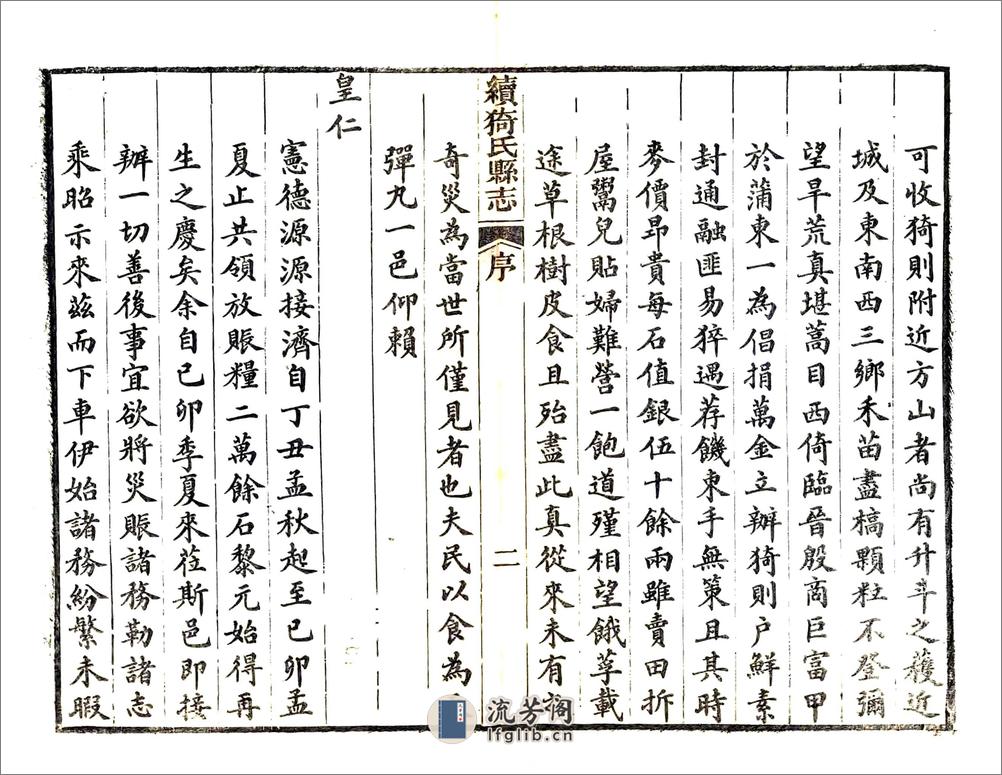 可收猗則附近方山者尚有升斗之穫近
城及東南西三鄉禾苗盡槁顆粒不登彌
望旱荒真堪蒿目西倚臨晉殷商巨富甲
於蒲東一為倡捐萬金立辦猗則户鮮素
封通融匪易猝遇荐饑束手無策且其時
麥價昻貴每石值銀伍十餘兩雖賣田折
屋鬻兒貼婦難營一飽道殣相望餓莩載
途草根樹皮食且殆盡此真從來未有
續猗氏縣志 序 二
奇災為當世所僅見者也夫民以食為
彈丸一邑仰賴
皇仁
憲德源源接濟自丁丑孟秋起至己卯孟
夏止共領放賑糧二萬餘石黎元始得再
生之慶矣余自己卯季夏來莅斯邑即接
辦一切善後事宜欲將災賑諸務勒諸志
乘昭示來茲而下車伊始諸務紛繁未暇
流芳阁
lfglib.cn